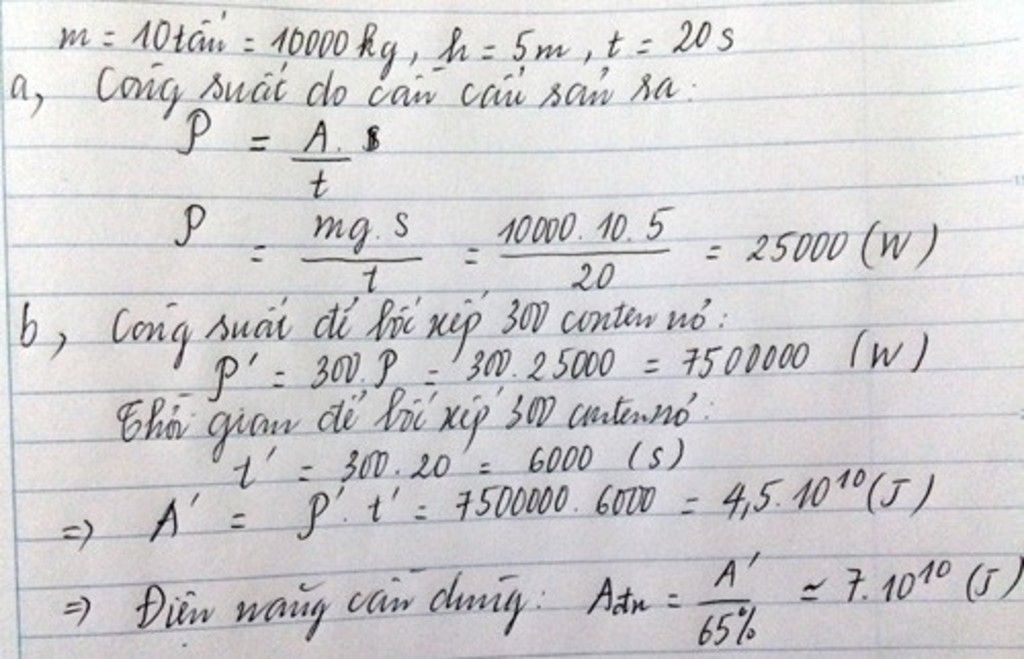 m = 10 tấn = 10000 kg, h = 5m, t = 20s
a, Công suất do cần cẩu sản ra:
P = A / t
P = mg.s / t = 10000.10.5 / 20 = 25000 (W)
b, Công suất để bốc xếp 300 contennơ:
P' = 300.P = 300.25000 = 7500000 (W)
Thời gian để bốc xếp 300 contennơ:
t' = 300.20 = 6000 (s)
=> A' = P'.t' = 7500000.6000 = 4,5.10¹⁰ (J)
=> Điện năng cần dùng: Ađn = A' / 65% ≃ 7.10¹⁰ (J)